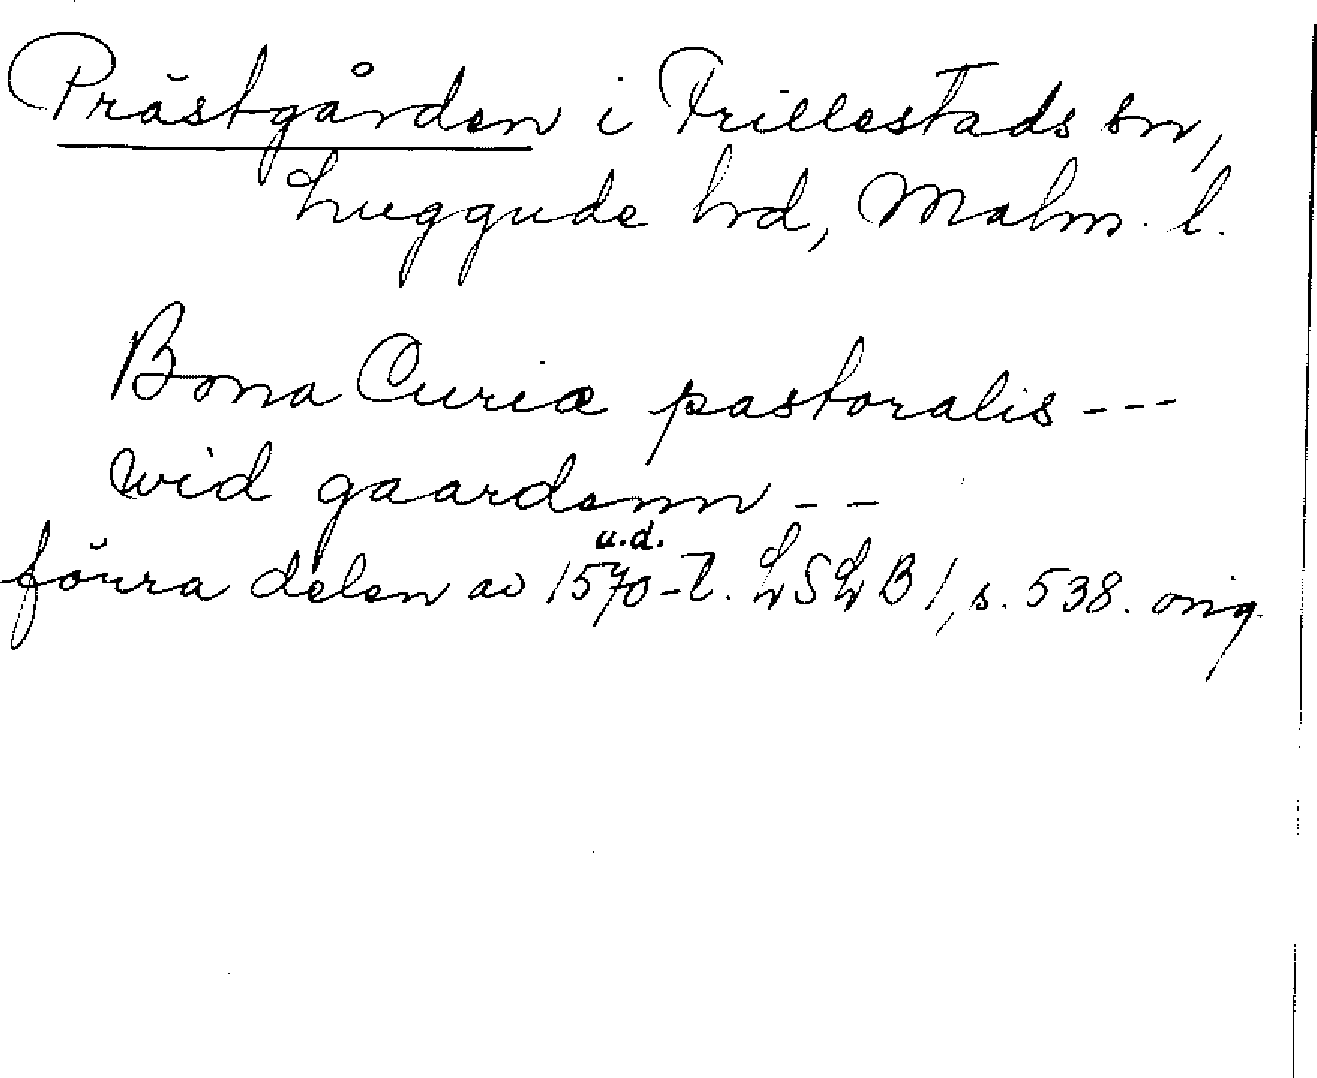 Prästgården i Frillestads sn,
Luggude hrd, Malm. l.
Bona Curiæ pastoralis ---
wid gaardenn --
u.d.
förra delen av 1570-t. LSLB 1, s. 538. orig.